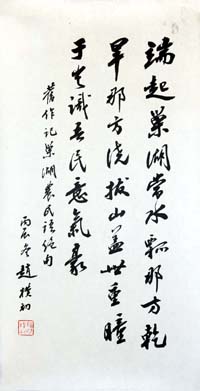 端起巢湖當水瓢那方乾
旱那方澆拔山蓋世重瞳
子豈識吾民意氣豪
舊作記巢湖農民語絕句
丙辰冬趙樸初